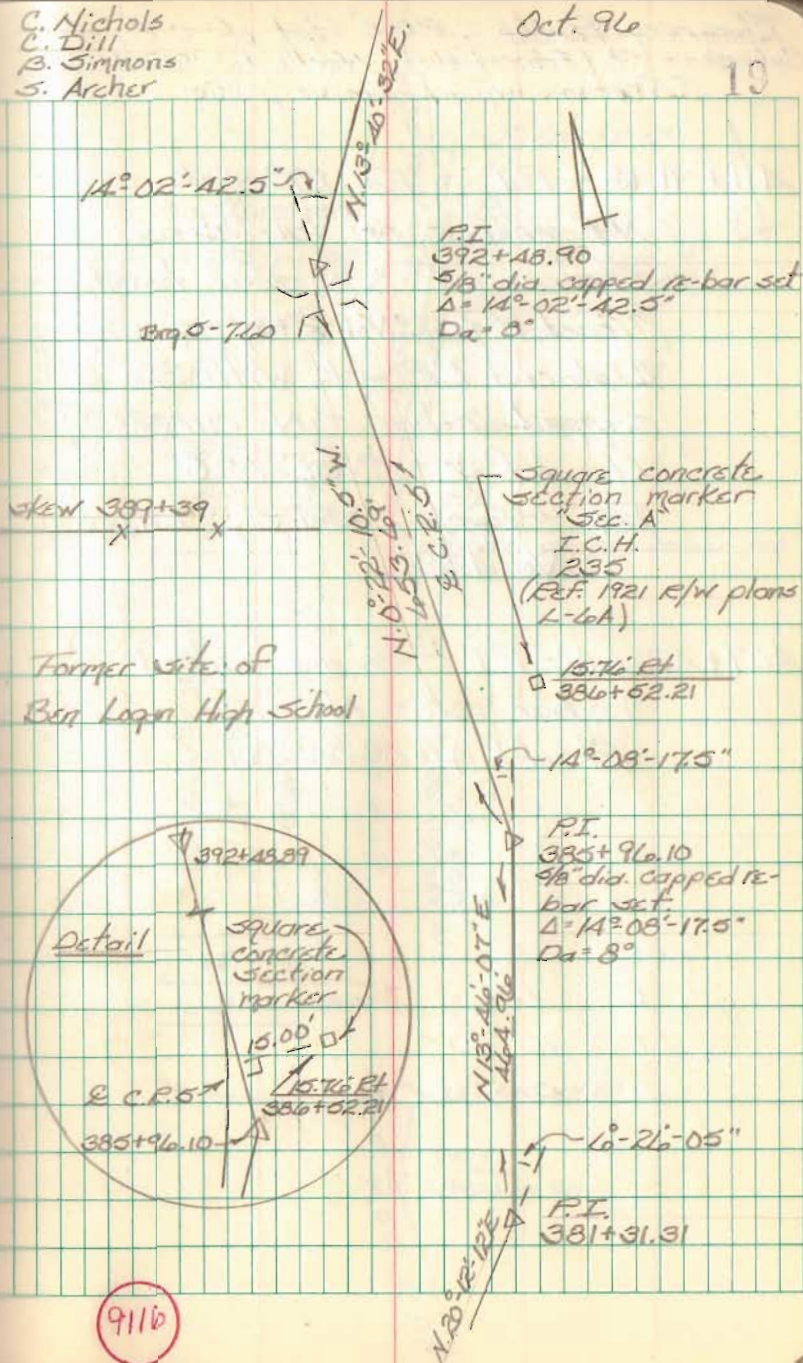 C. Nichols
C. Dill
B. Simmons
S. Archer
Oct. 96
19
N.13°-40'-32"E.
14°-02'-42.5"
P.I.
392+48.90
5/8" dia. capped re-bar set
Δ= 14°-02'-42.5"
Da= 8°
Brg. 5-7.60
SKEW 389+39
N.0°-22'-10.5"W.
653.62'
℄ C.R. 5
square concrete
section marker
"Sec. A"
I.C.H.
235
(Ref. 1921 R/W plans
L-6A)
15.76' Rt
386+52.21
Former site of
Ben Logan High School
14°-08'-17.5"
P.I.
385+96.10
5/8" dia. capped re-
bar set.
Δ=14°-08'-17.5"
Da= 8°
392+48.89
Detail
square
concrete
section
marker
15.00'
℄ C.R. 5
15.76' Rt
386+52.21
385+96.10
N13°-46'-07"E
464.96'
6°-26'-05"
P.I.
381+31.31
N.20°-12'-12"E
9116